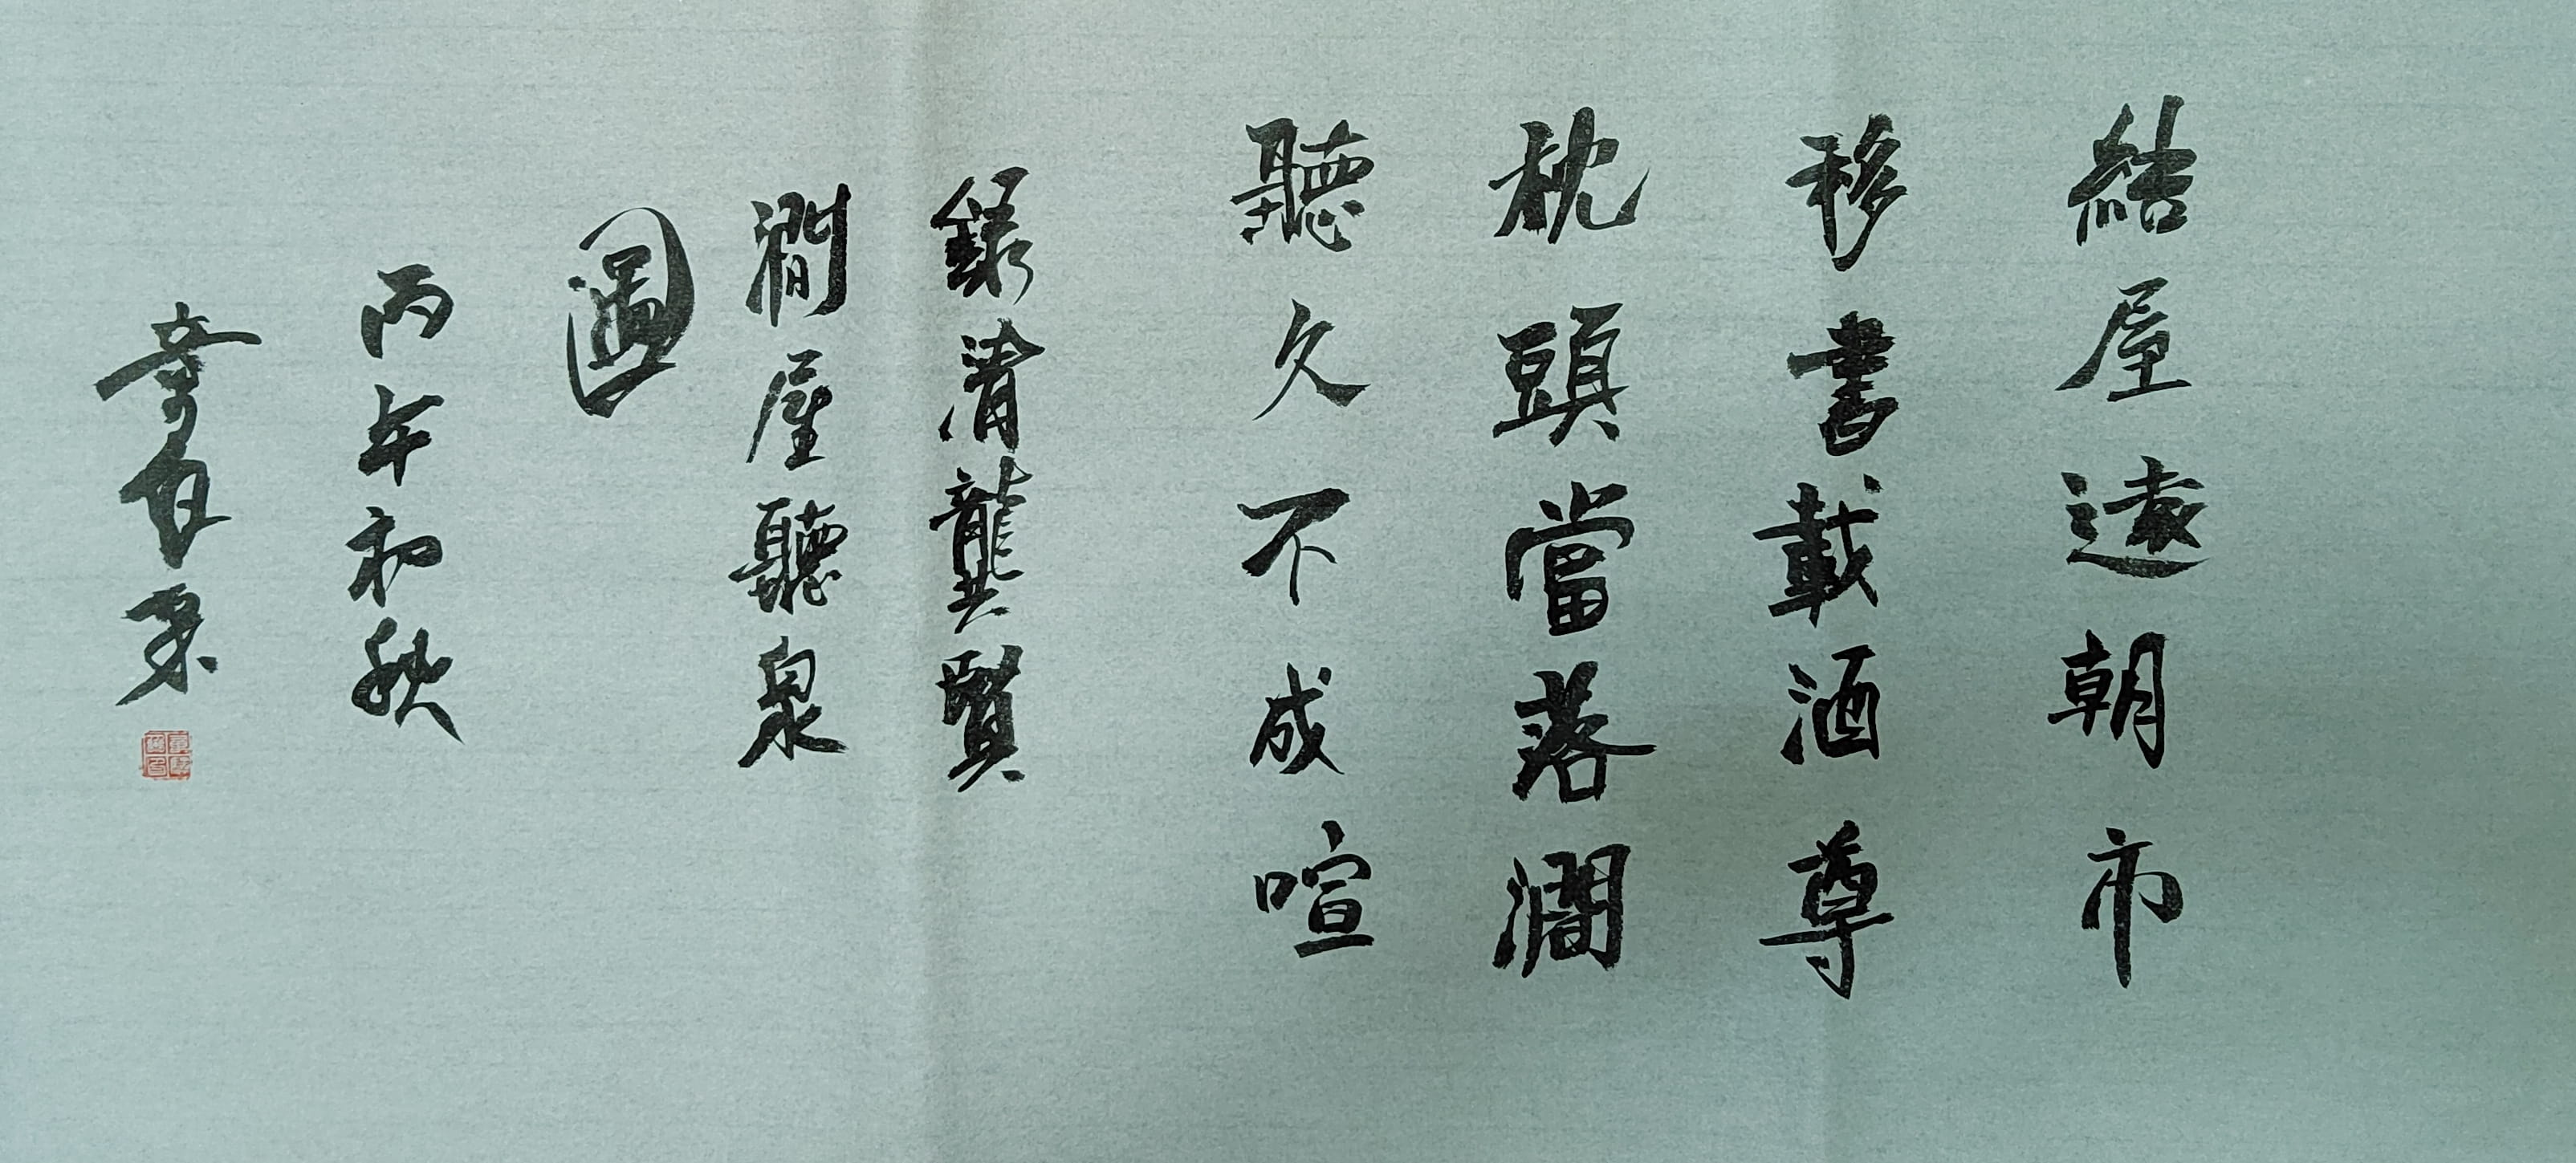 結屋遠朝市
移書載酒尊
枕頭當落澗
聽久不成喧
錄清龔賢
澗屋聽泉
圖
丙午初秋